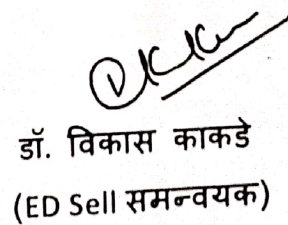 डॉ. विकास काकडे
(ED Sell समन्वयक)